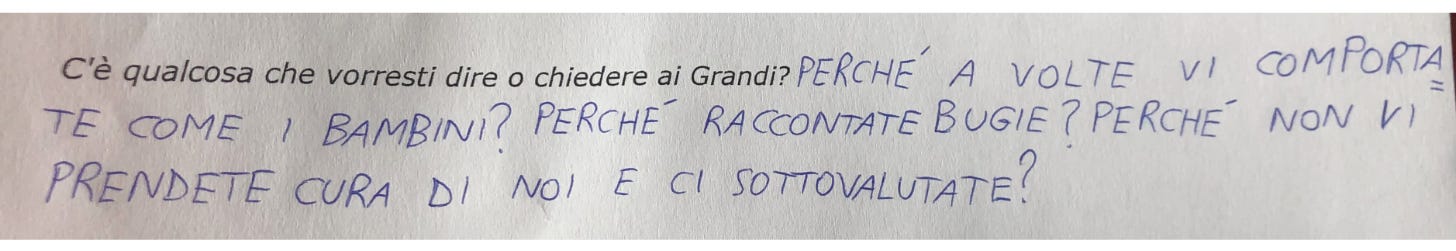 C'è qualcosa che vorresti dire o chiedere ai Grandi? PERCHÉ A VOLTE VI COMPORTA=
TE COME I BAMBINI? PERCHÉ RACCONTATE BUGIE? PERCHÉ NON VI
PRENDETE CURA DI NOI E CI SOTTOVALUTATE?